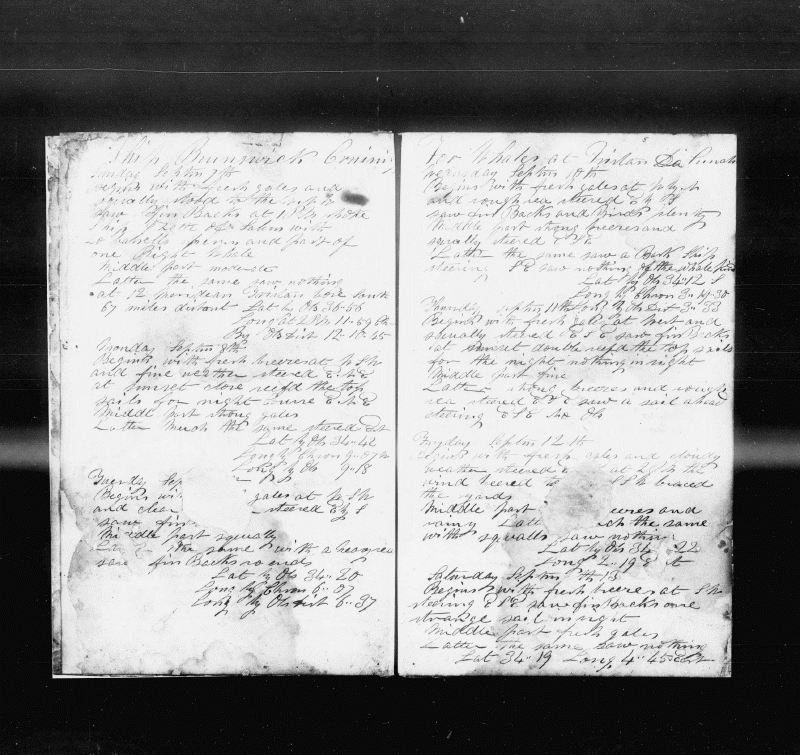 Ship Brunswick Cruising
Sunday Septm 7th
Begins with fresh gales and
squally stood to the
saw fin Backs at 1 PM spoke
Ship of Salem with
penny and part of
one Right Whale
Middle part moderate
Latter the same saw nothing
at 12 meridean bore
67 miles distant Lat by Obs 36-56
Long at 2 PM 11-59
By Obs Dist 12-10-45
Monday Septm 8th
Begins with fresh breeses at W S W
and fine wether steered E N E
at sunset close reefd the top
sails for night E N E
Middle part strong gales
Latter Much the same steered Est
Lat by Obs 34-42
Long by Chron 9-07
Long by Obs 9-18
Tuesday Sep
Begins wi gales at W S W
and clear steered E by S
saw fin
Middle part squally
the same with a heavy sea
saw fin Backs no end
Lat by Obs 34-20
Long by Chron 6-07
Long by Obs dist 6-37
For Whales at Tristan Da
Septm 10th
Begins with fresh gales at
and rough sea steered E by S
saw fin Backs and Birds plenty
Middle part strong breeses and
squally steered E S E
Latter the same saw a Bark Ship
steering S E saw nothing of the whale kind
Lat by Obs 34-12 S
Long by Chron 3-19-30
Thursday Septm 11th Long by Obs Dist 3-33
Begins with fresh gales at West and
squally steered E S E saw fin Backs
at sunset double reefd the top sails
for the night nothing in sight
Middle part fine
Latter strong breeses and rough
sea steered E S E saw a sail ahead
steering E S E No Obs
Fryday Septm 12 th
Begins with fresh gales and cloudy
weather steered E at 2 PM the
wind veered to S S W braced
the yards
Middle part breeses and
rainy Latt ch the same
with squalls saw nothin
Lat by Obs 34 22
Long 2-19 E st
Saturday Septm th 13
Begins with fresh breeses at S W
steering E S E saw fin Backs one
strange sail in sight
Middle part fresh gales
Latter the same saw nothing
Lat 34-19 Long 4-45 Est